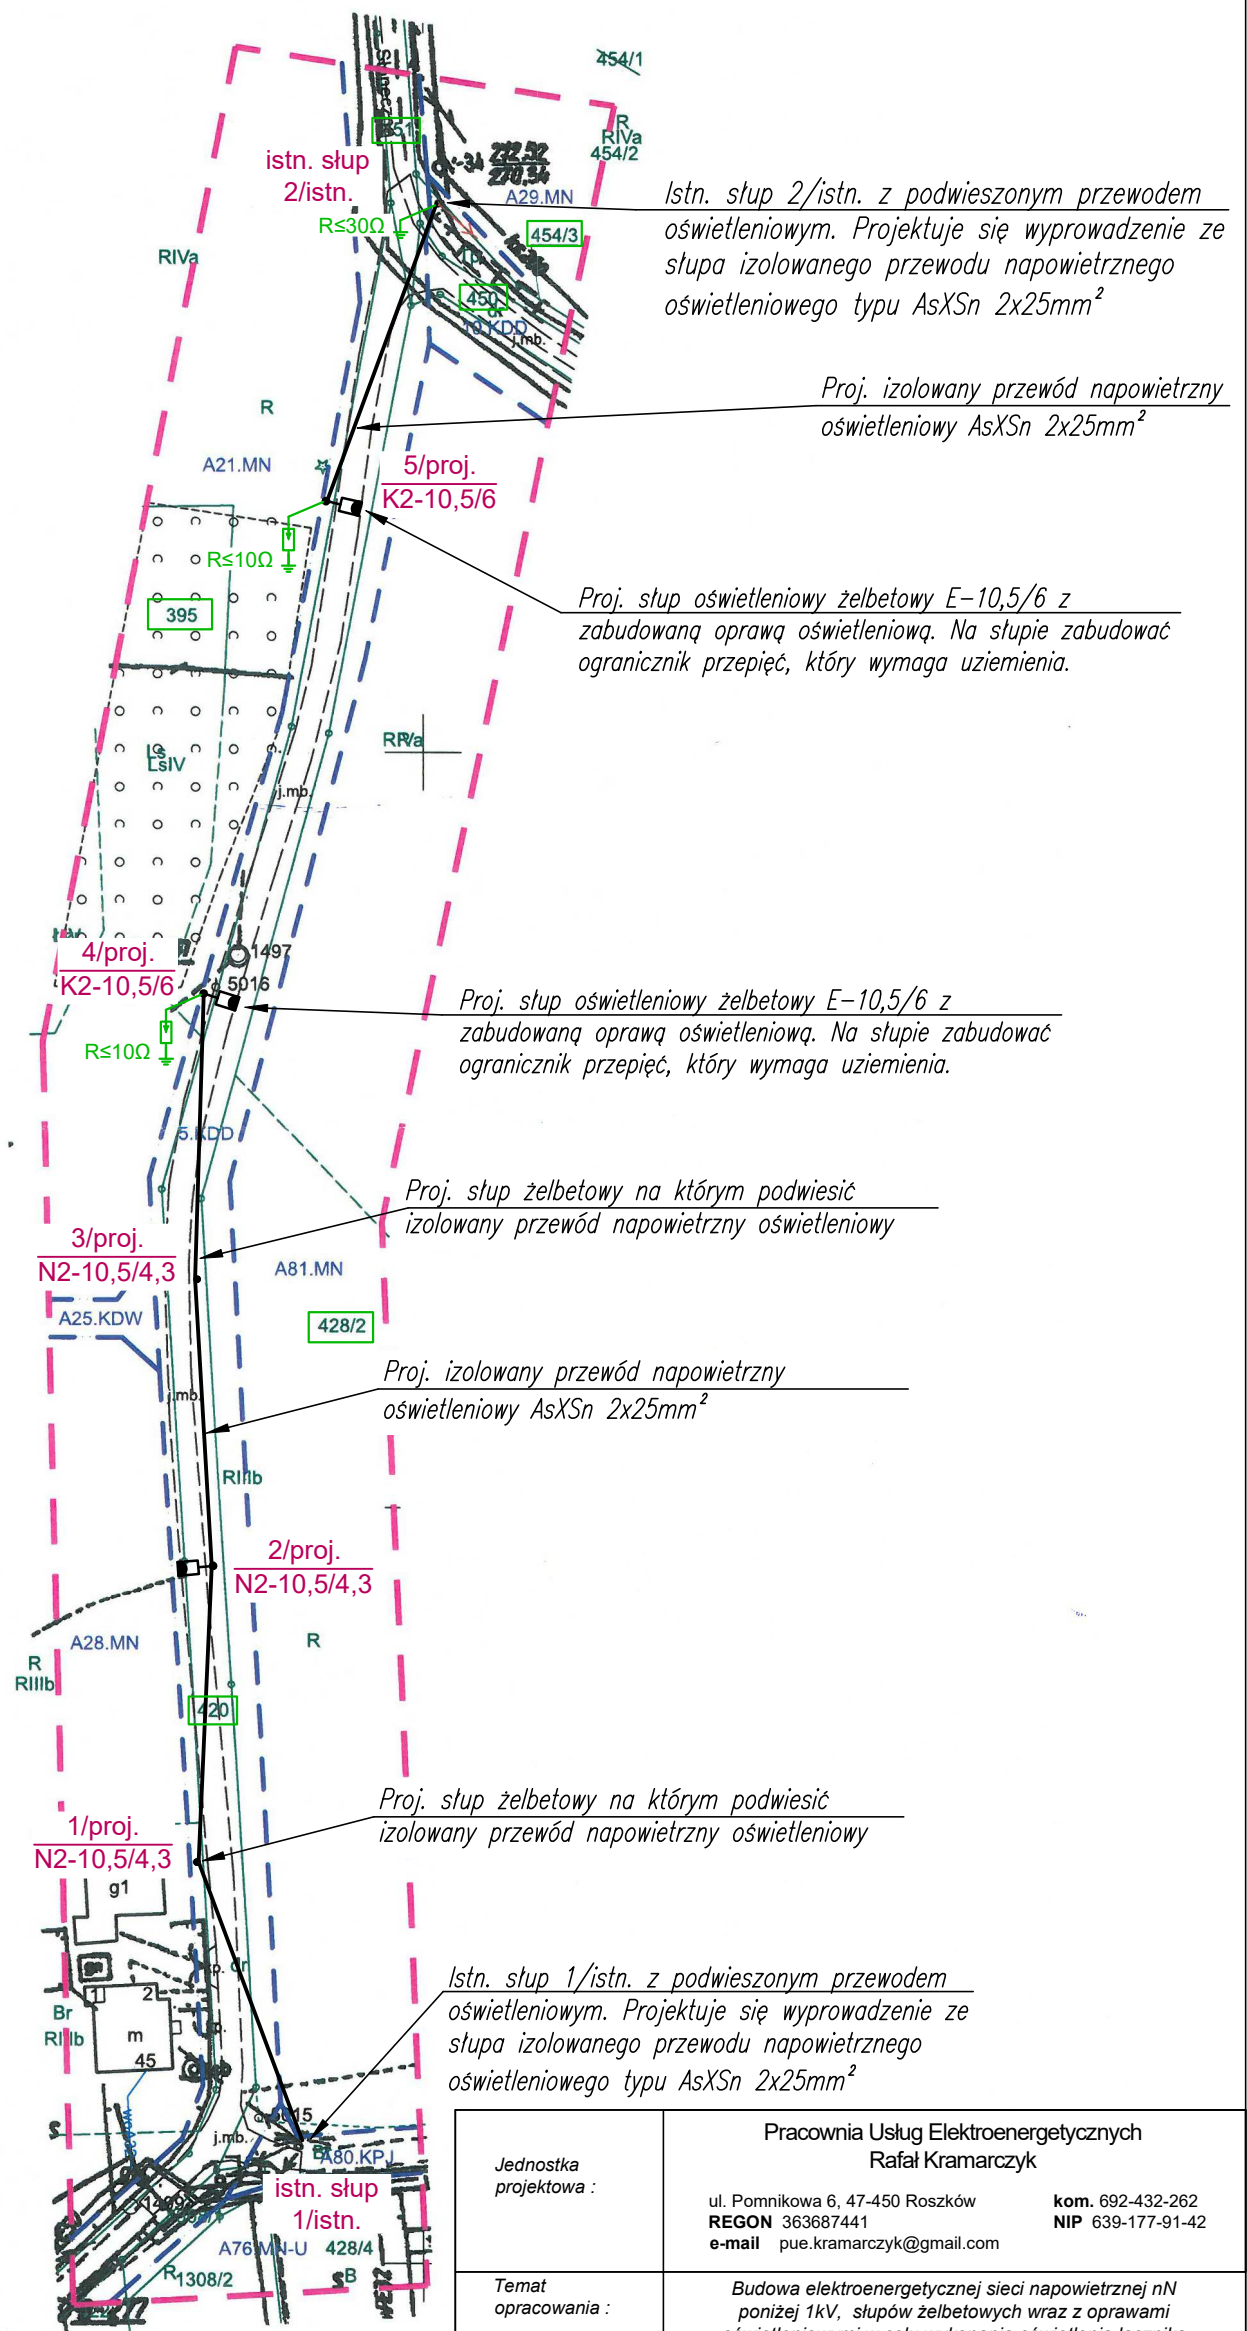 454/1
R
RIVa
454/2
istn. słup
2/istn.
R≤30Ω
A29.MN
454/3
RIVa
450
10.KDD
j.mb.
Istn. słup 2/istn. z podwieszonym przewodem
oświetleniowym. Projektuje się wyprowadzenie ze
słupa izolowanego przewodu napowietrznego
oświetleniowego typu AsXSn 2x25mm²
Proj. izolowany przewód napowietrzny
oświetleniowy AsXSn 2x25mm²
R
A21.MN
5/proj.
K2-10,5/6
R≤10Ω
395
Proj. słup oświetleniowy żelbetowy E-10,5/6 z
zabudowaną oprawą oświetleniową. Na słupie zabudować
ogranicznik przepięć, który wymaga uziemienia.
Ls
LsIV
j.mb.
1497
5016
4/proj.
K2-10,5/6
R≤10Ω
Proj. słup oświetleniowy żelbetowy E-10,5/6 z
zabudowaną oprawą oświetleniową. Na słupie zabudować
ogranicznik przepięć, który wymaga uziemienia.
5.KDD
Proj. słup żelbetowy na którym podwiesić
izolowany przewód napowietrzny oświetleniowy
3/proj.
N2-10,5/4,3
A81.MN
A25.KDW
428/2
Proj. izolowany przewód napowietrzny
oświetleniowy AsXSn 2x25mm²
j.mb.
RIIIb
2/proj.
N2-10,5/4,3
A28.MN
R
R
RIIIb
420
Proj. słup żelbetowy na którym podwiesić
izolowany przewód napowietrzny oświetleniowy
1/proj.
N2-10,5/4,3
g1
dr
Istn. słup 1/istn. z podwieszonym przewodem
oświetleniowym. Projektuje się wyprowadzenie ze
słupa izolowanego przewodu napowietrznego
oświetleniowego typu AsXSn 2x25mm²
1 2
Br
RIIIb
m
45
j.mb.
A80.KPJ
istn. słup
1/istn.
A76.MN-U
428/4
R
1308/2
B
Jednostka
projektowa :
Pracownia Usług Elektroenergetycznych
Rafał Kramarczyk
ul. Pomnikowa 6, 47-450 Roszków kom. 692-432-262
REGON 363687441 NIP 639-177-91-42
e-mail pue.kramarczyk@gmail.com
Temat
opracowania :
Budowa elektroenergetycznej sieci napowietrznej nN
poniżej 1kV, słupów żelbetowych wraz z oprawami